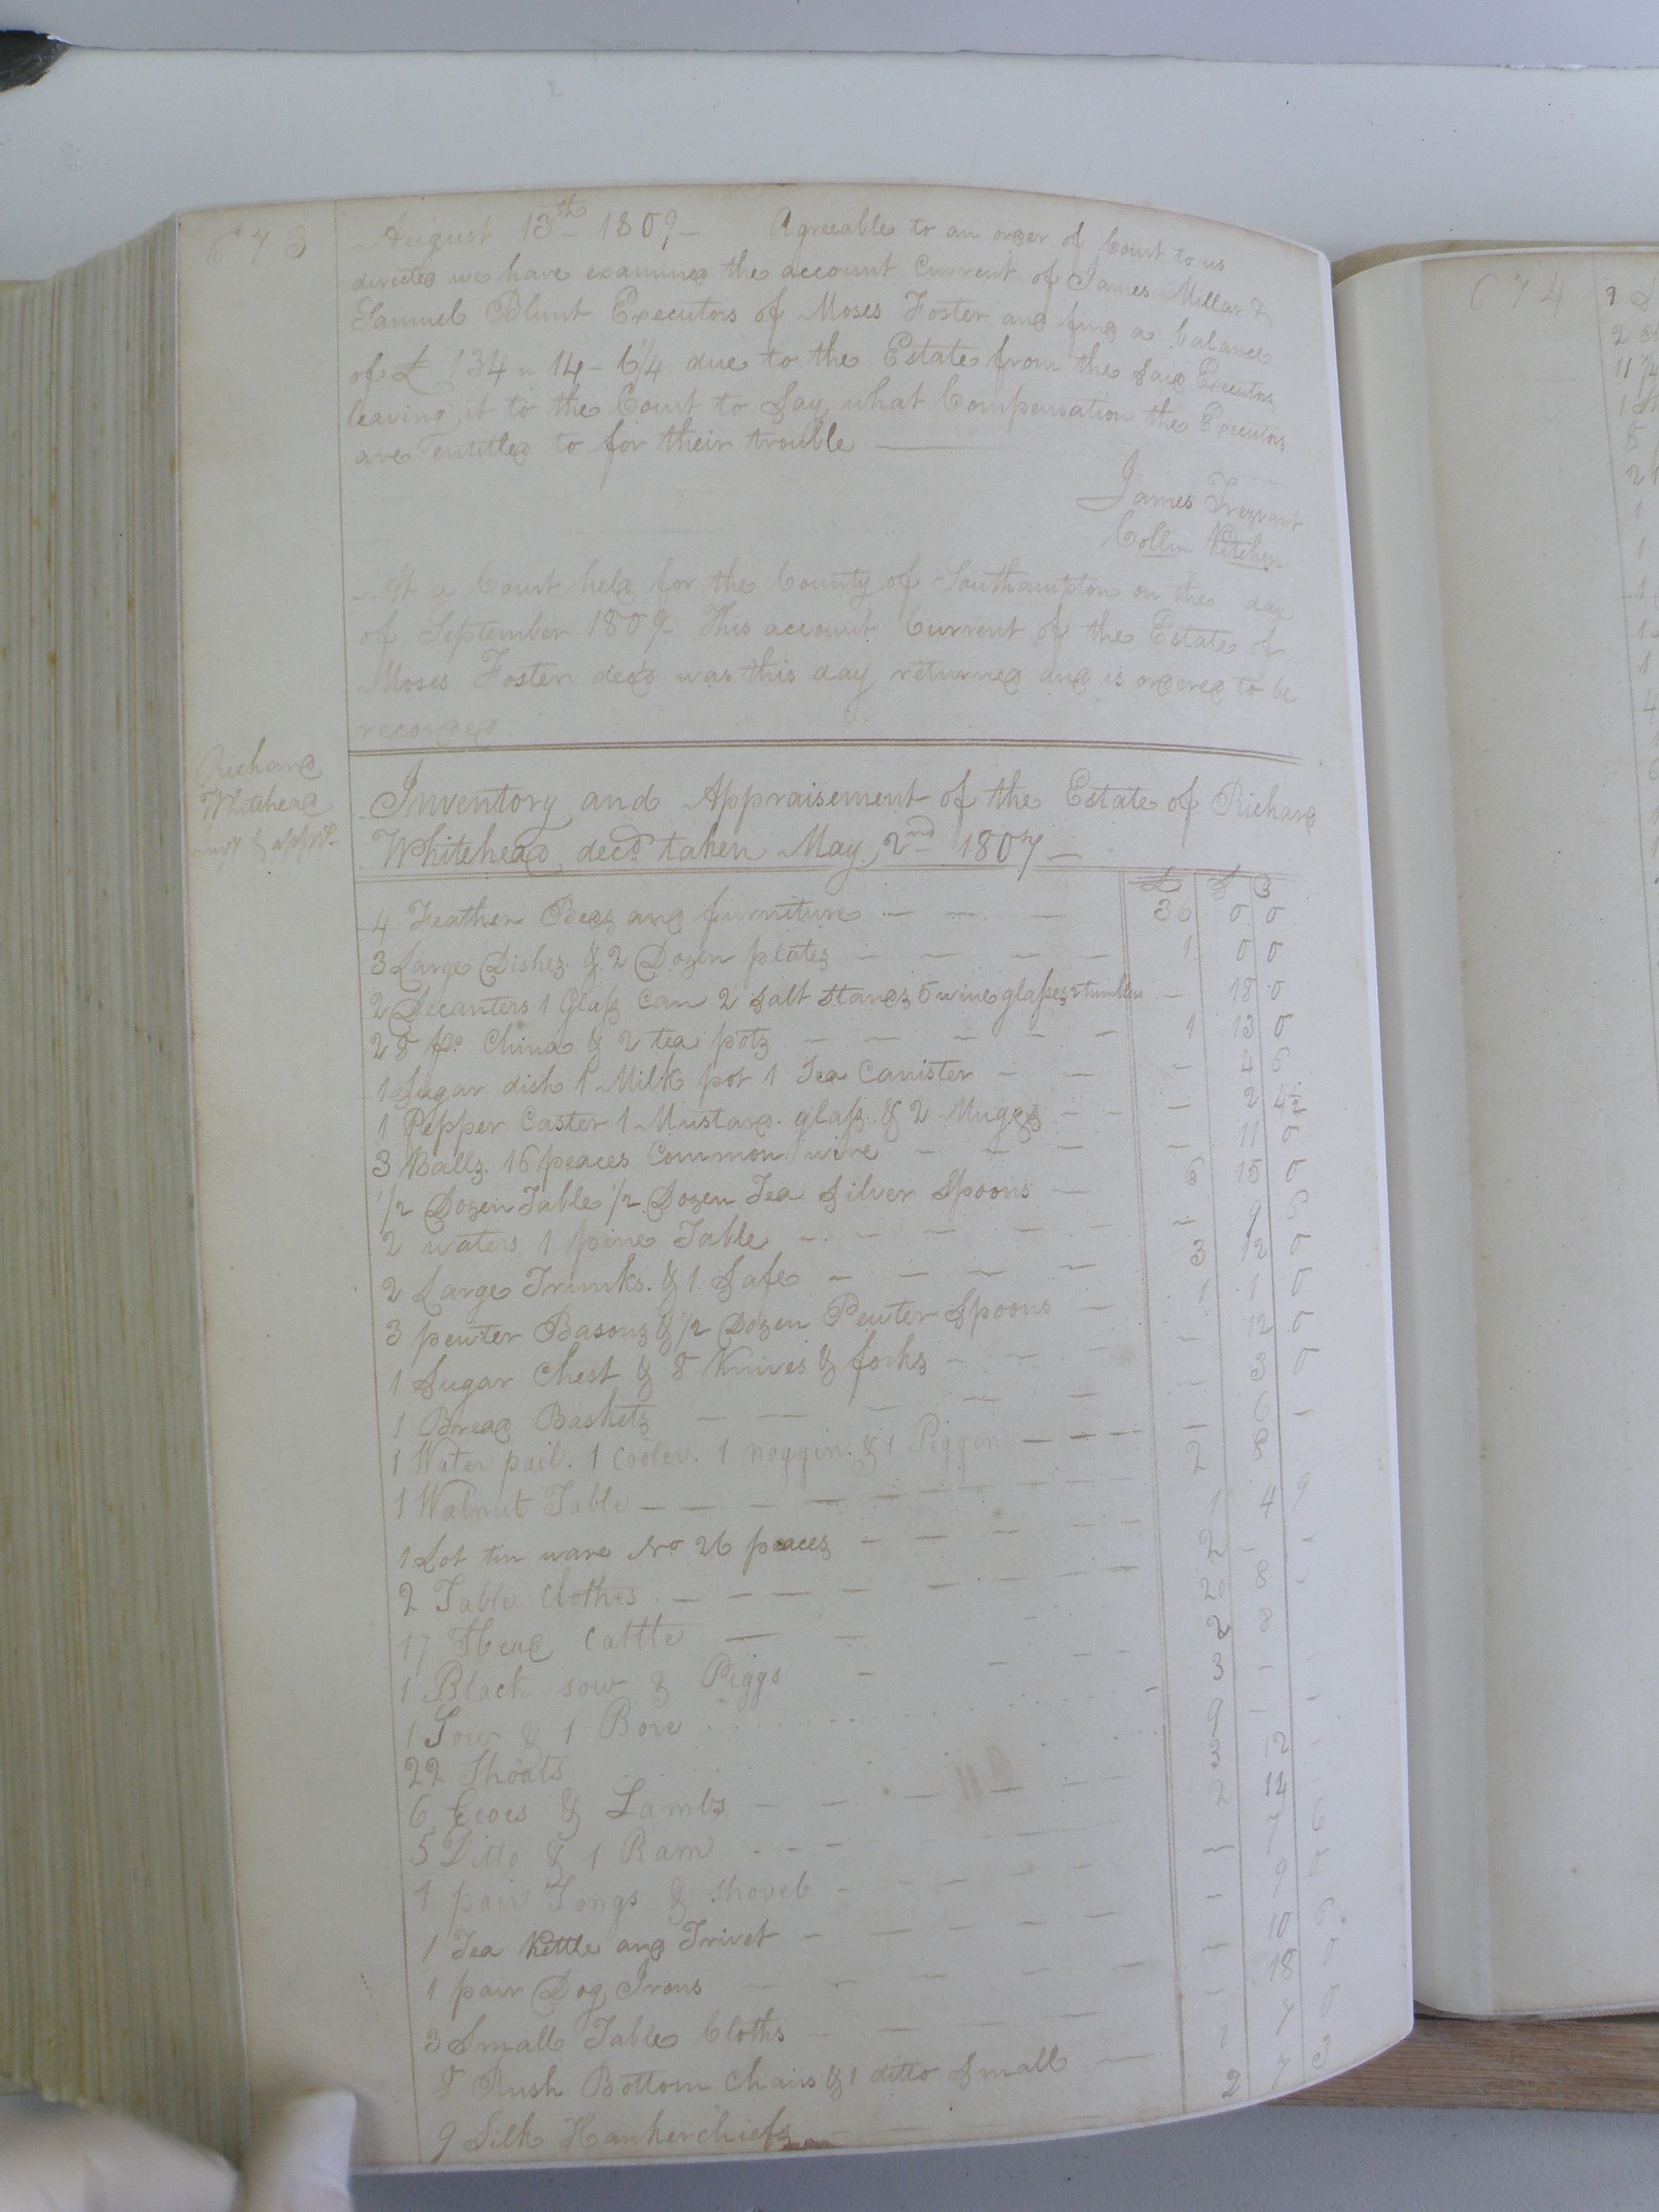 673
August 13th 1809 - Agreeable to an order of Court to us
directed we have examined the account Current of James Millar &
Samuel Blunt Executors of Moses Foster and find a balance
of £ 134 " 14 - 6¼ due to the Estate from the said Executors
leaving it to the Court to say what Compensation the Executors
are entitled to for their trouble
James Trezvant
Collin Kitchen
At a Court held for the County of Southampton on the day
of September 1809 - This account Current of the Estate of
Moses Foster decd was this day returned and is ordered to be
recorded
Richard
Whitehead
& apprt
Inventory and Appraisement of the Estate of Richard
Whitehead decd taken May 2nd 1807 -
£ S D
4 Feather Beds and furniture - - - 30 0 0
3 Large Dishes & 2 Dozen plates - - - - 1 0 0
2 Decanters 1 Glass Can 2 Salt Stands 5 wine glasses 2 tumblers - 18 0
28 ps. China & 2 tea pots - - - - - 1 13 0
1 Sugar dish 1 Milk pot 1 Tea Canister - - - 4 6
1 Pepper Caster 1 Mustard glass & 2 Muggs - - - 2 4½
3 Balls 16 peaces Common - - - - 11 0
1/2 Dozen Table 1/2 Dozen Tea Silver Spoons - 6 15 0
2 waters 1 pine Table - - - - - - 9 6
2 Large Trunks & 1 Safe - - - - 3 12 0
3 pewter Basons & 1/2 Dozen Pewter Spoons - 1 1 0
1 Sugar Chest & 8 Knives & forks - - - - 12 0
1 Bread Baskets - - - - - - 3 0
1 Water pail. 1 Cooler. 1 noggin. & 1 Piggin - - - - - 6 -
1 Walnut Table - - - - - - - - 2 8
1 Lot tin ware No 26 peaces - - - - - 1 4 9
2 Table Clothes - - - - - - - - 2 - -
17 Head Cattle - - 20 8 -
1 Black sow & Piggs - - - - 2 8
1 Sow & 1 Bore - 3 - -
22 Shoats 9 - -
6 Ewes & Lambs - - - - - - 3 12 -
5 Ditto & 1 Ram - - - - 2 14 -
1 pair Tongs & shovel - - - - - - 7 6
1 Tea Kettle and Trivet - - - - - - 9 0
1 pair Dog Irons - - - - - - 10 6
3 Small Table Cloths - - - - - 18 0
8 Rush Bottom Chairs & 1 ditto Small - 1 7 0
9 Silk Hankerchiefs - - - 2 7 3
674